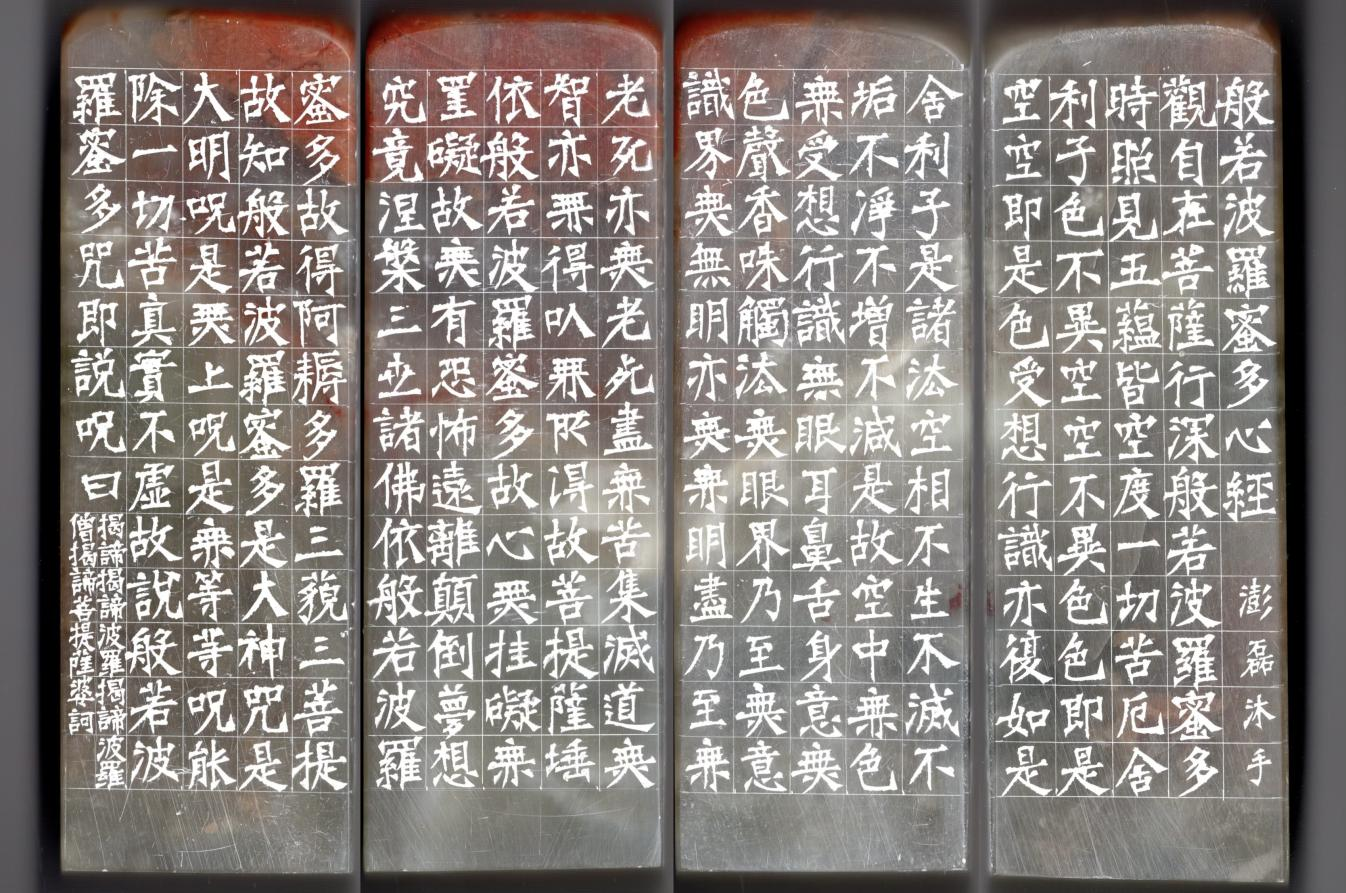 般若波羅蜜多心經 澎磊沐手
觀自在菩薩行深般若波羅蜜多
時照見五蘊皆空度一切苦厄舍
利子色不異空空不異色色即是
空空即是色受想行識亦復如是
舍利子是諸法空相不生不滅不
垢不淨不增不減是故空中無色
無受想行識無眼耳鼻舌身意無
色聲香味觸法無眼界乃至無意
識界無無明亦無無明盡乃至無
老死亦無老死盡無苦集滅道無
智亦無得以無所得故菩提薩埵
依般若波羅蜜多故心無挂礙無
罣礙故無有恐怖遠離顛倒夢想
究竟涅槃三世諸佛依般若波羅
蜜多故得阿耨多羅三藐三菩提
故知般若波羅蜜多是大神咒是
大明呪是無上呪是無等等呪能
除一切苦真實不虛故說般若波
羅蜜多咒即說呪曰
揭諦揭諦波羅揭諦波羅
僧揭諦菩提薩婆訶